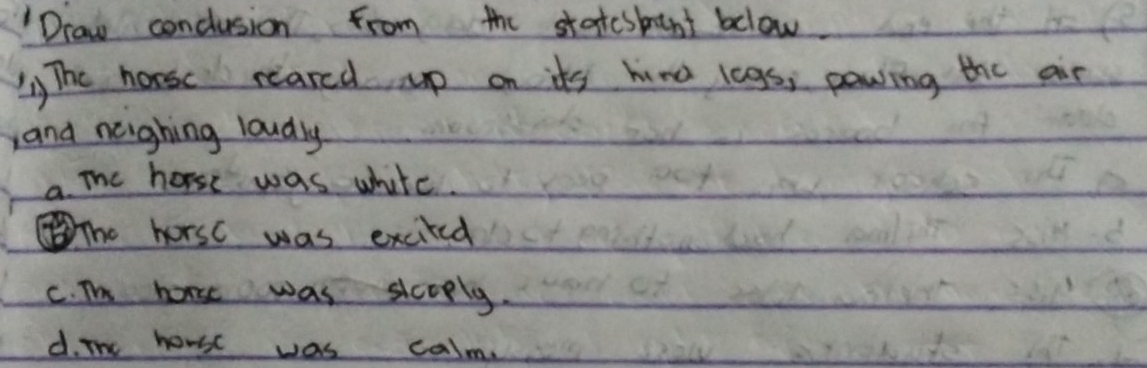 Draw conclusion from the statesment below.
1) The horse reared up on its hind legs, pawing the air
and neighing loudly
a. The horse was white.
b The horse was excited
c. Th horse was sleeply.
d. The horse was calm.